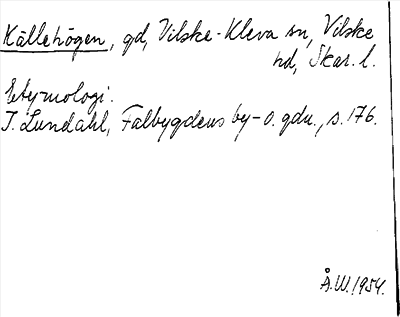 Källehögen, gd, Vilske-Kleva sn, Vilske
hd, Skar. l.
Etymologi.
I. Lundahl, Falbygdens by- o. gdn., s. 176.
Å.W. 1954.